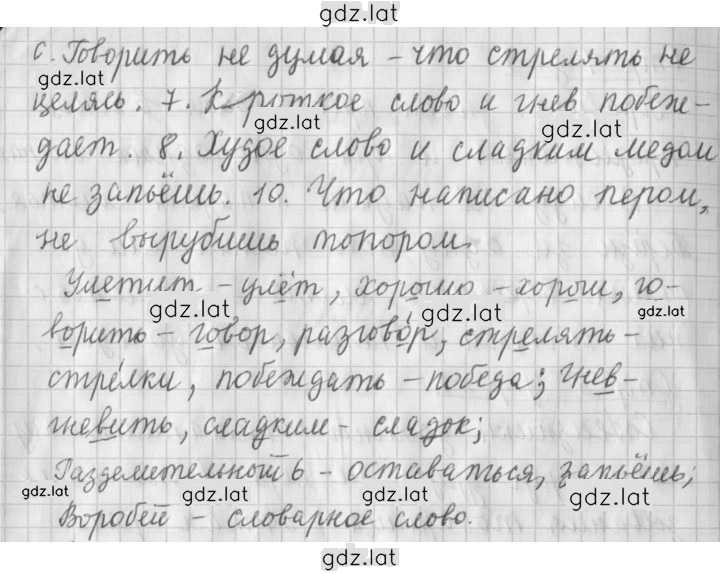 gdz.lat
с. Говорить не думая – что стрелять не
gdz.lat
целясь. 7. Короткое слово и гнев побеж-
gdz.lat gdz.lat
дает. 8. Худое слово и сладким медом
не запьёшь. 10. Что написано пером,
не вырубишь топором.
Улетит – улёт, хорошо – хорош, го-
gdz.lat gdz.lat gdz.lat
ворить – говор, разговор, стрелять –
стрелки, побеждать – победа; гнев –
гневить, сладким – сладок;
Разделительный ь – оставаться, запьёшь;
gdz.lat gdz.lat gdz.lat gdz.lat
Воробей – словарное слово.
gdz.lat